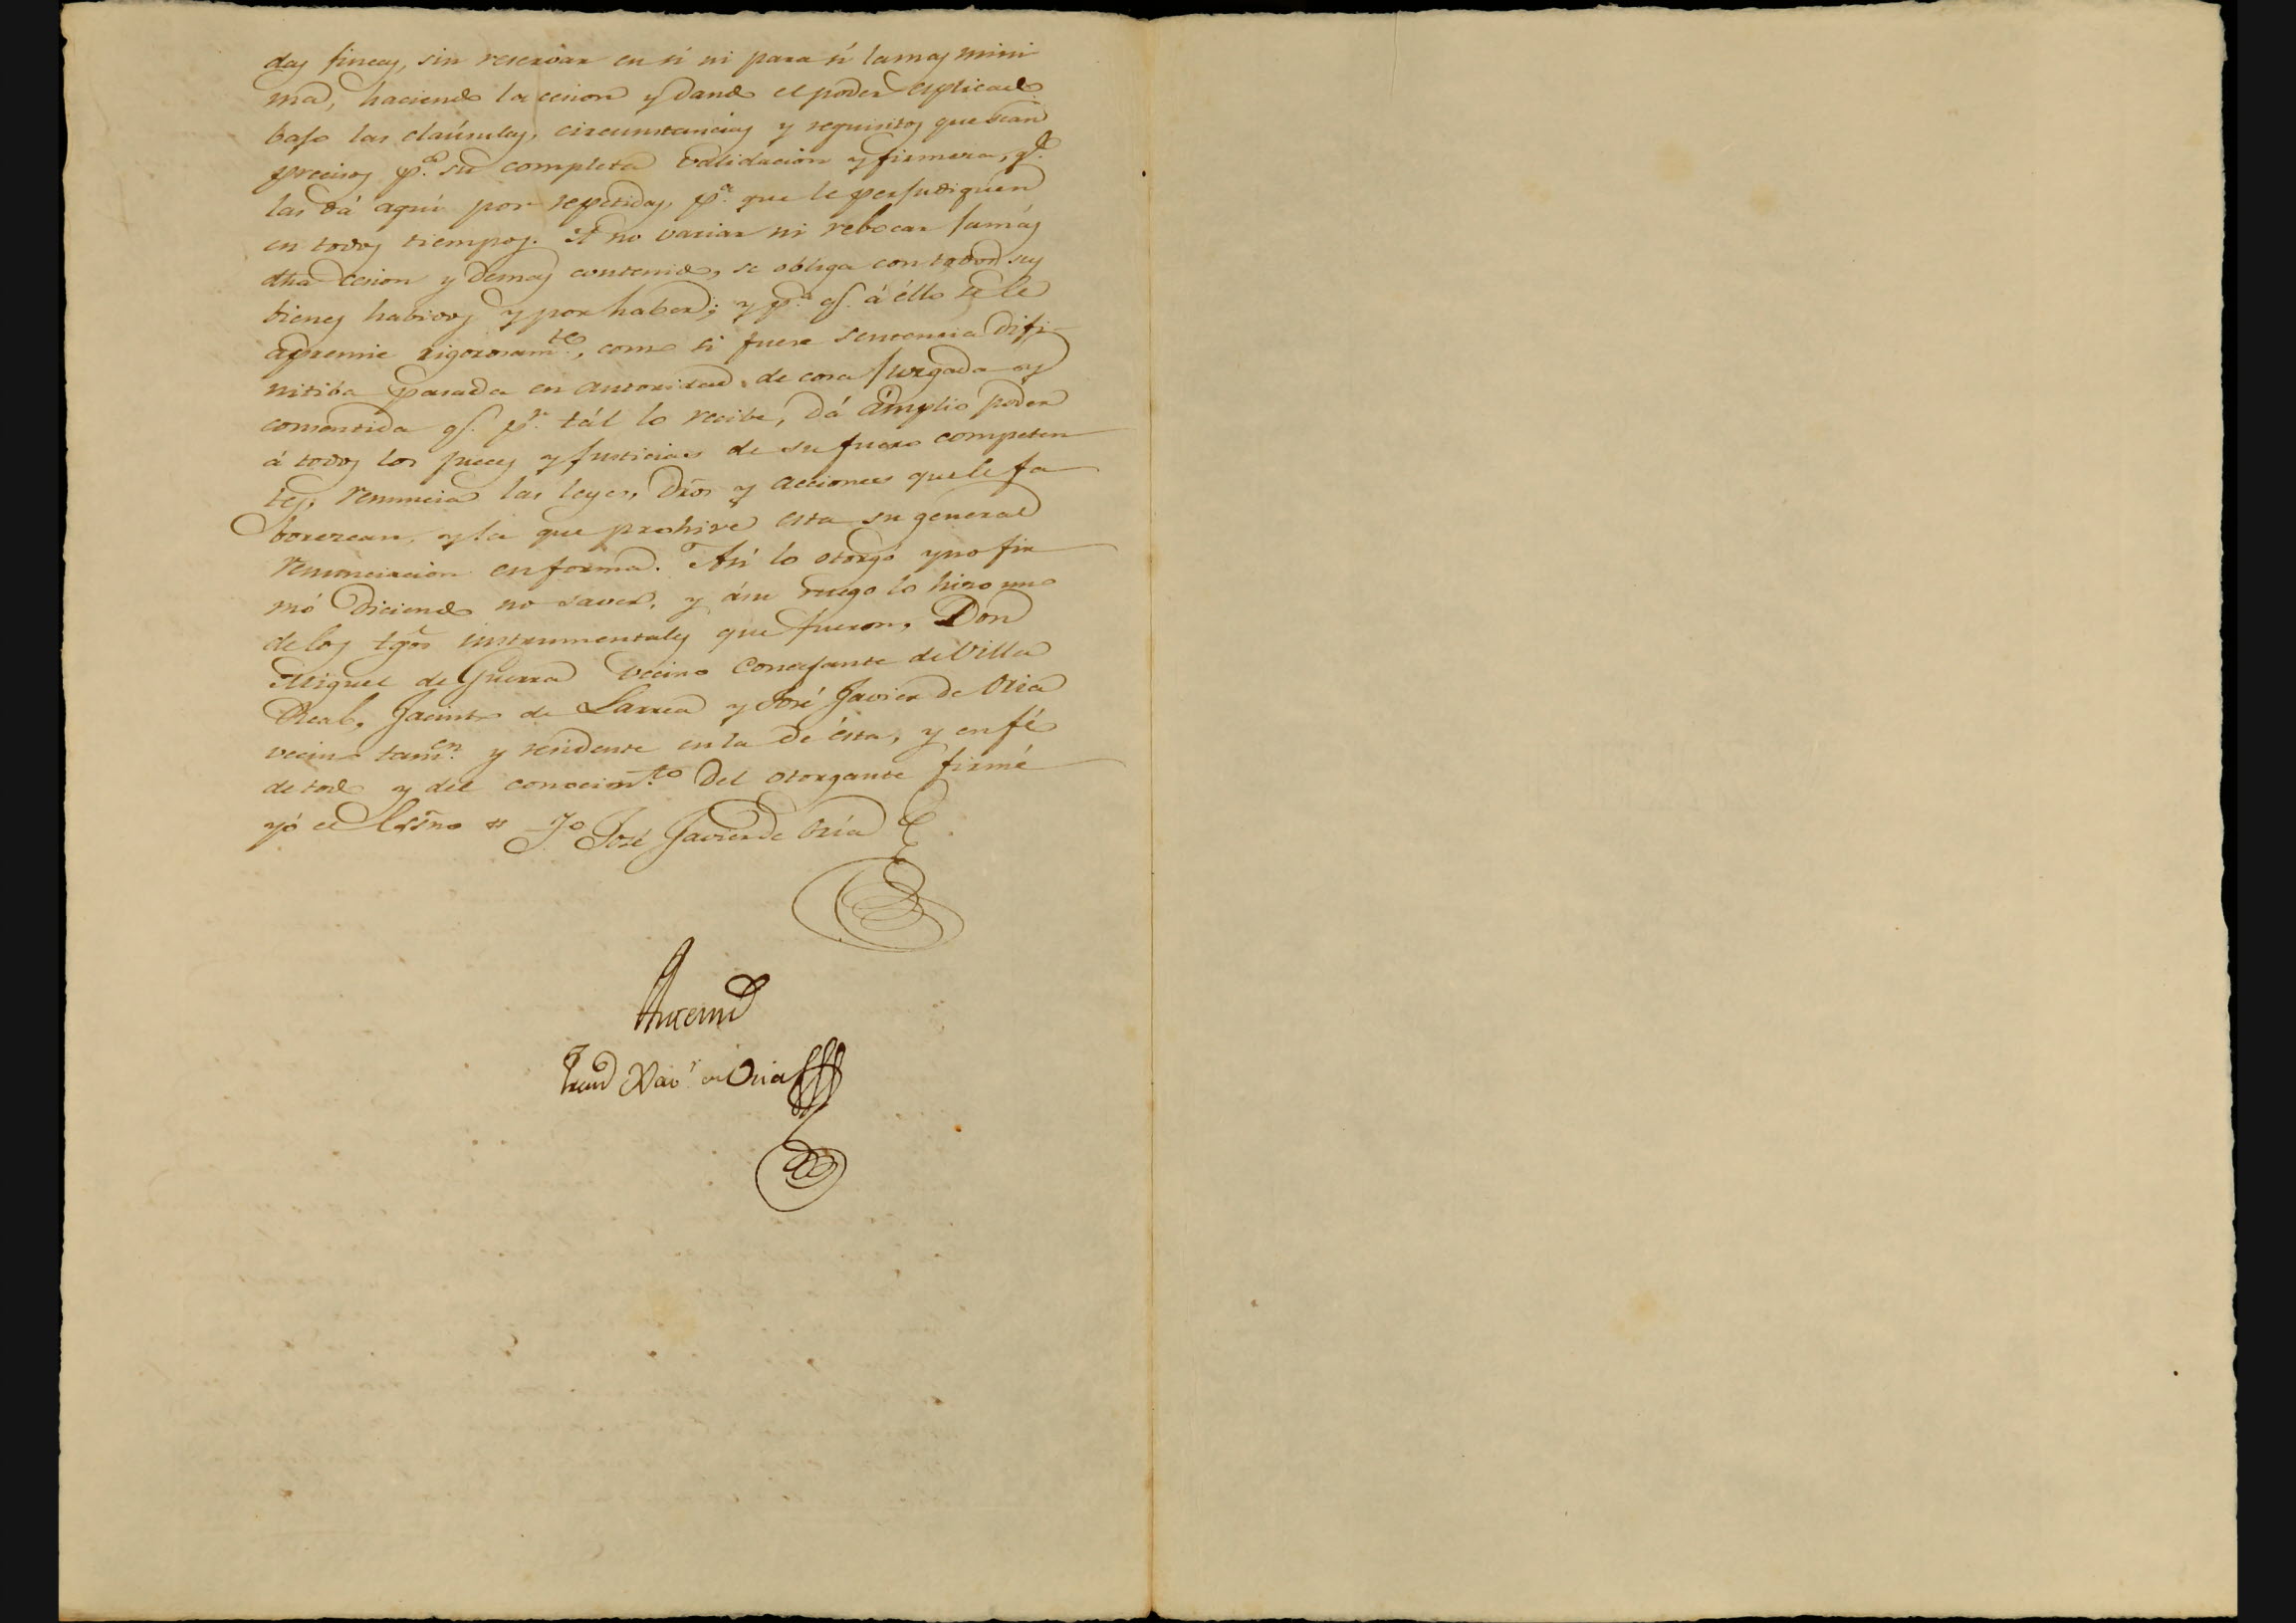 das fincas, sin reservar en sí ni para sí la mas mini
ma, haciendo la cesion y dando el poder esplicado
bajo las claúsulas, circunstancias y requisitos que sean
precisos pª. su completa validacion y firmeza, qe.
las dá aquí por repetidas, pª. que le perjudiquen
en todos tiempos. Y á no variar ni rebocar jamás
dha cesion y demas contenido, se obliga con todos sus
bienes habidos y por haber; y pª. q. á éllo se le
apremie rigorosamte., como si fuere sentencia difi-
nitiba pasada en autoridad de cosa juzgada y
consentida q. pr. tál lo recibe, dá ámplio poder
á todos los jueces y justicias de su fuero competen
tes, renuncia las leyes, dros y acciones que le fa
borezcan, y la que prohive esta su general
renunciacion en forma. Así lo otorgó y no fir
mó diciendo no saver, y á su ruego lo hizo uno
de los tgos instrumentales que fueron, Don
Miguel de Guerra vecino concejante de Villa
Real, Jacinto de Larrea y José Javier de Oria
vecino tamen. y residente en la de ésta, y en fé
de todo y del conocimto. del otorgante firmé
yó el Essno = Jo José Javier de Oria
Antemi
Xavr. de Oria